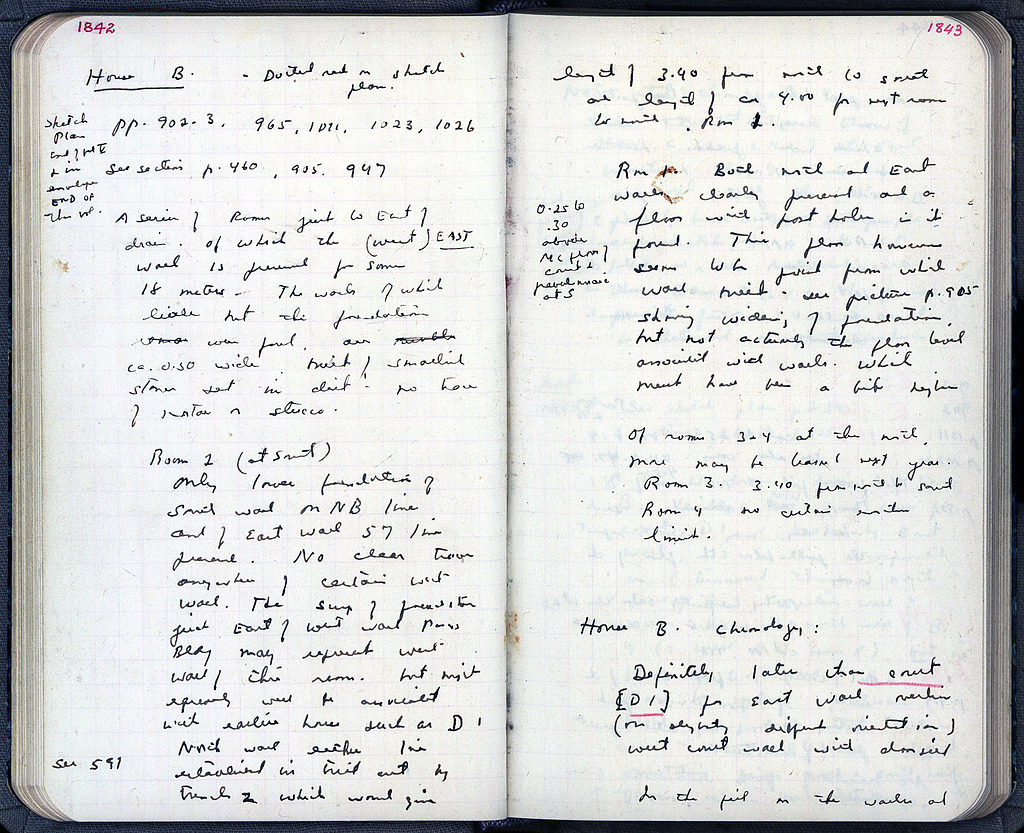 1842
House B. - Dotted red on sketch
plan.
Sketch
Plan
end of vol
+ in
envelope
END OF
this vol.
pp. 902-3, 965, 1011, 1023, 1026
See section p. 460, 905, 947
A series of Rooms just to East of
drain. Of which the (west) EAST
wall is present for some
18 meters - The walls of which
little but the foundation
was found, are
ca. 0.50 wide, built of smallish
stones set in dirt - no trace
of mortar or stucco.
Room 1 (at South)
Only lower foundation of
South wall on NB line
and of East wall 57 line
present. No clear trace
anywhere of certain west
wall. The
just East of west wall
Bldg may represent west
wall of this room. but might
equally well be associated
with earlier house such as D 1
North wall
established in by
See 591
trench 2 which would give
1843
length of 3.40 from north to south
and length of ca 4.00 for next room
to north. Rm 2.
Rm Both north and East
walls clearly present and a
0.25 to
.30
above
floor of
court +
at S
floor with post holes in it
found. This floor however
seems to be point from which
wall built - see picture p. 905
showing widening of foundation,
but not actually the floor level
associated with walls. which
must have been a bit higher
Of rooms 3-4 at the north,
more may be learned next year.
Room 3. 3.40 from north to south
Room 4 no certain north
limit.
House B. Chronology:
Definitely later than court
[D 1] for East wall overlies
(on slightly different orientation)
west court wall with
In the fill on the walls at